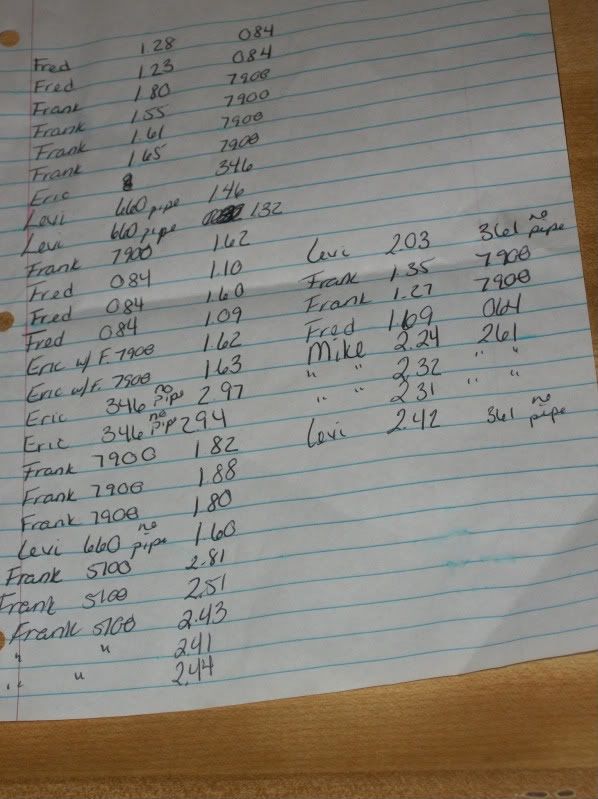 Fred 1.28 084
Fred 1.23 084
Frank 1.80 7900
Frank 1.55 7900
Frank 1.61 7900
Frank 1.65 7900
Eric 346
Levi 660 pipe 1.46
Levi 660 pipe 1.32
Frank 7900 1.62
Fred 084 1.10
Fred 084 1.60
Fred 084 1.09
Eric w/ F. 7900 1.62
Eric w/F. 7900 1.63
Eric 346 no pipe 2.97
Eric 346 no pipe 2.94
Frank 7900 1.82
Frank 7900 1.88
Frank 7900 1.80
Levi 660 no pipe 1.60
Frank 5100 2.81
Frank 5100 2.51
Frank 5100 2.43
" " 2.41
" " 2.44
Levi 2.03 361 no pipe
Frank 1.35 7900
Frank 1.27 7900
Fred 1.69 064
Mike 2.24 261
" " 2.32 " "
" " 2.31 " "
Levi 2.42 361 no pipe